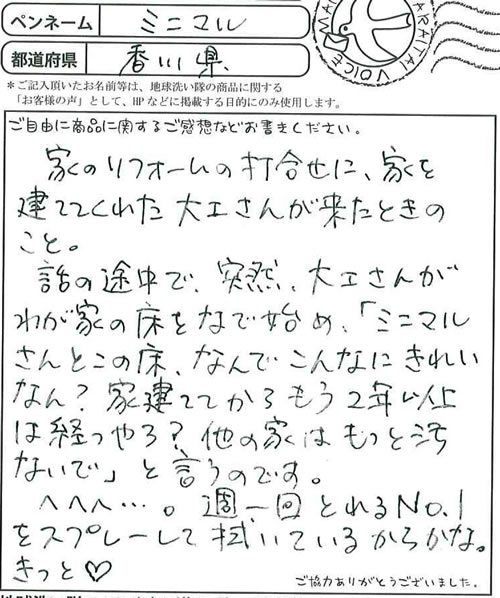 ペンネーム ミニマル
都道府県 香川県
＊ご記入頂いたお名前等は、地球洗い隊の商品に関する
「お客様の声」として、HPなどに掲載する目的にのみ使用します。
ARAITAI VOICE
ご自由に商品に関するご感想などお書きください。
家のリフォームの打合せに、家を
建ててくれた大工さんが来たときの
こと。
話の途中で、突然、大工さんが
わが家の床をなで始め、「ミニマル
さんとこの床、なんでこんなにきれい
なん？家建ててからもう2年以上
は経つやろ？他の家はもっと汚
ないで」と言うのです。
へへへ…。週一回とれるNo.1
をスプレーして拭いているからかな。
きっと♡
ご協力ありがとうございました。